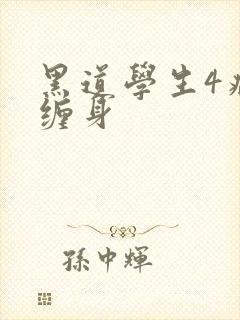 黑道學生4
缠身
孫中輝